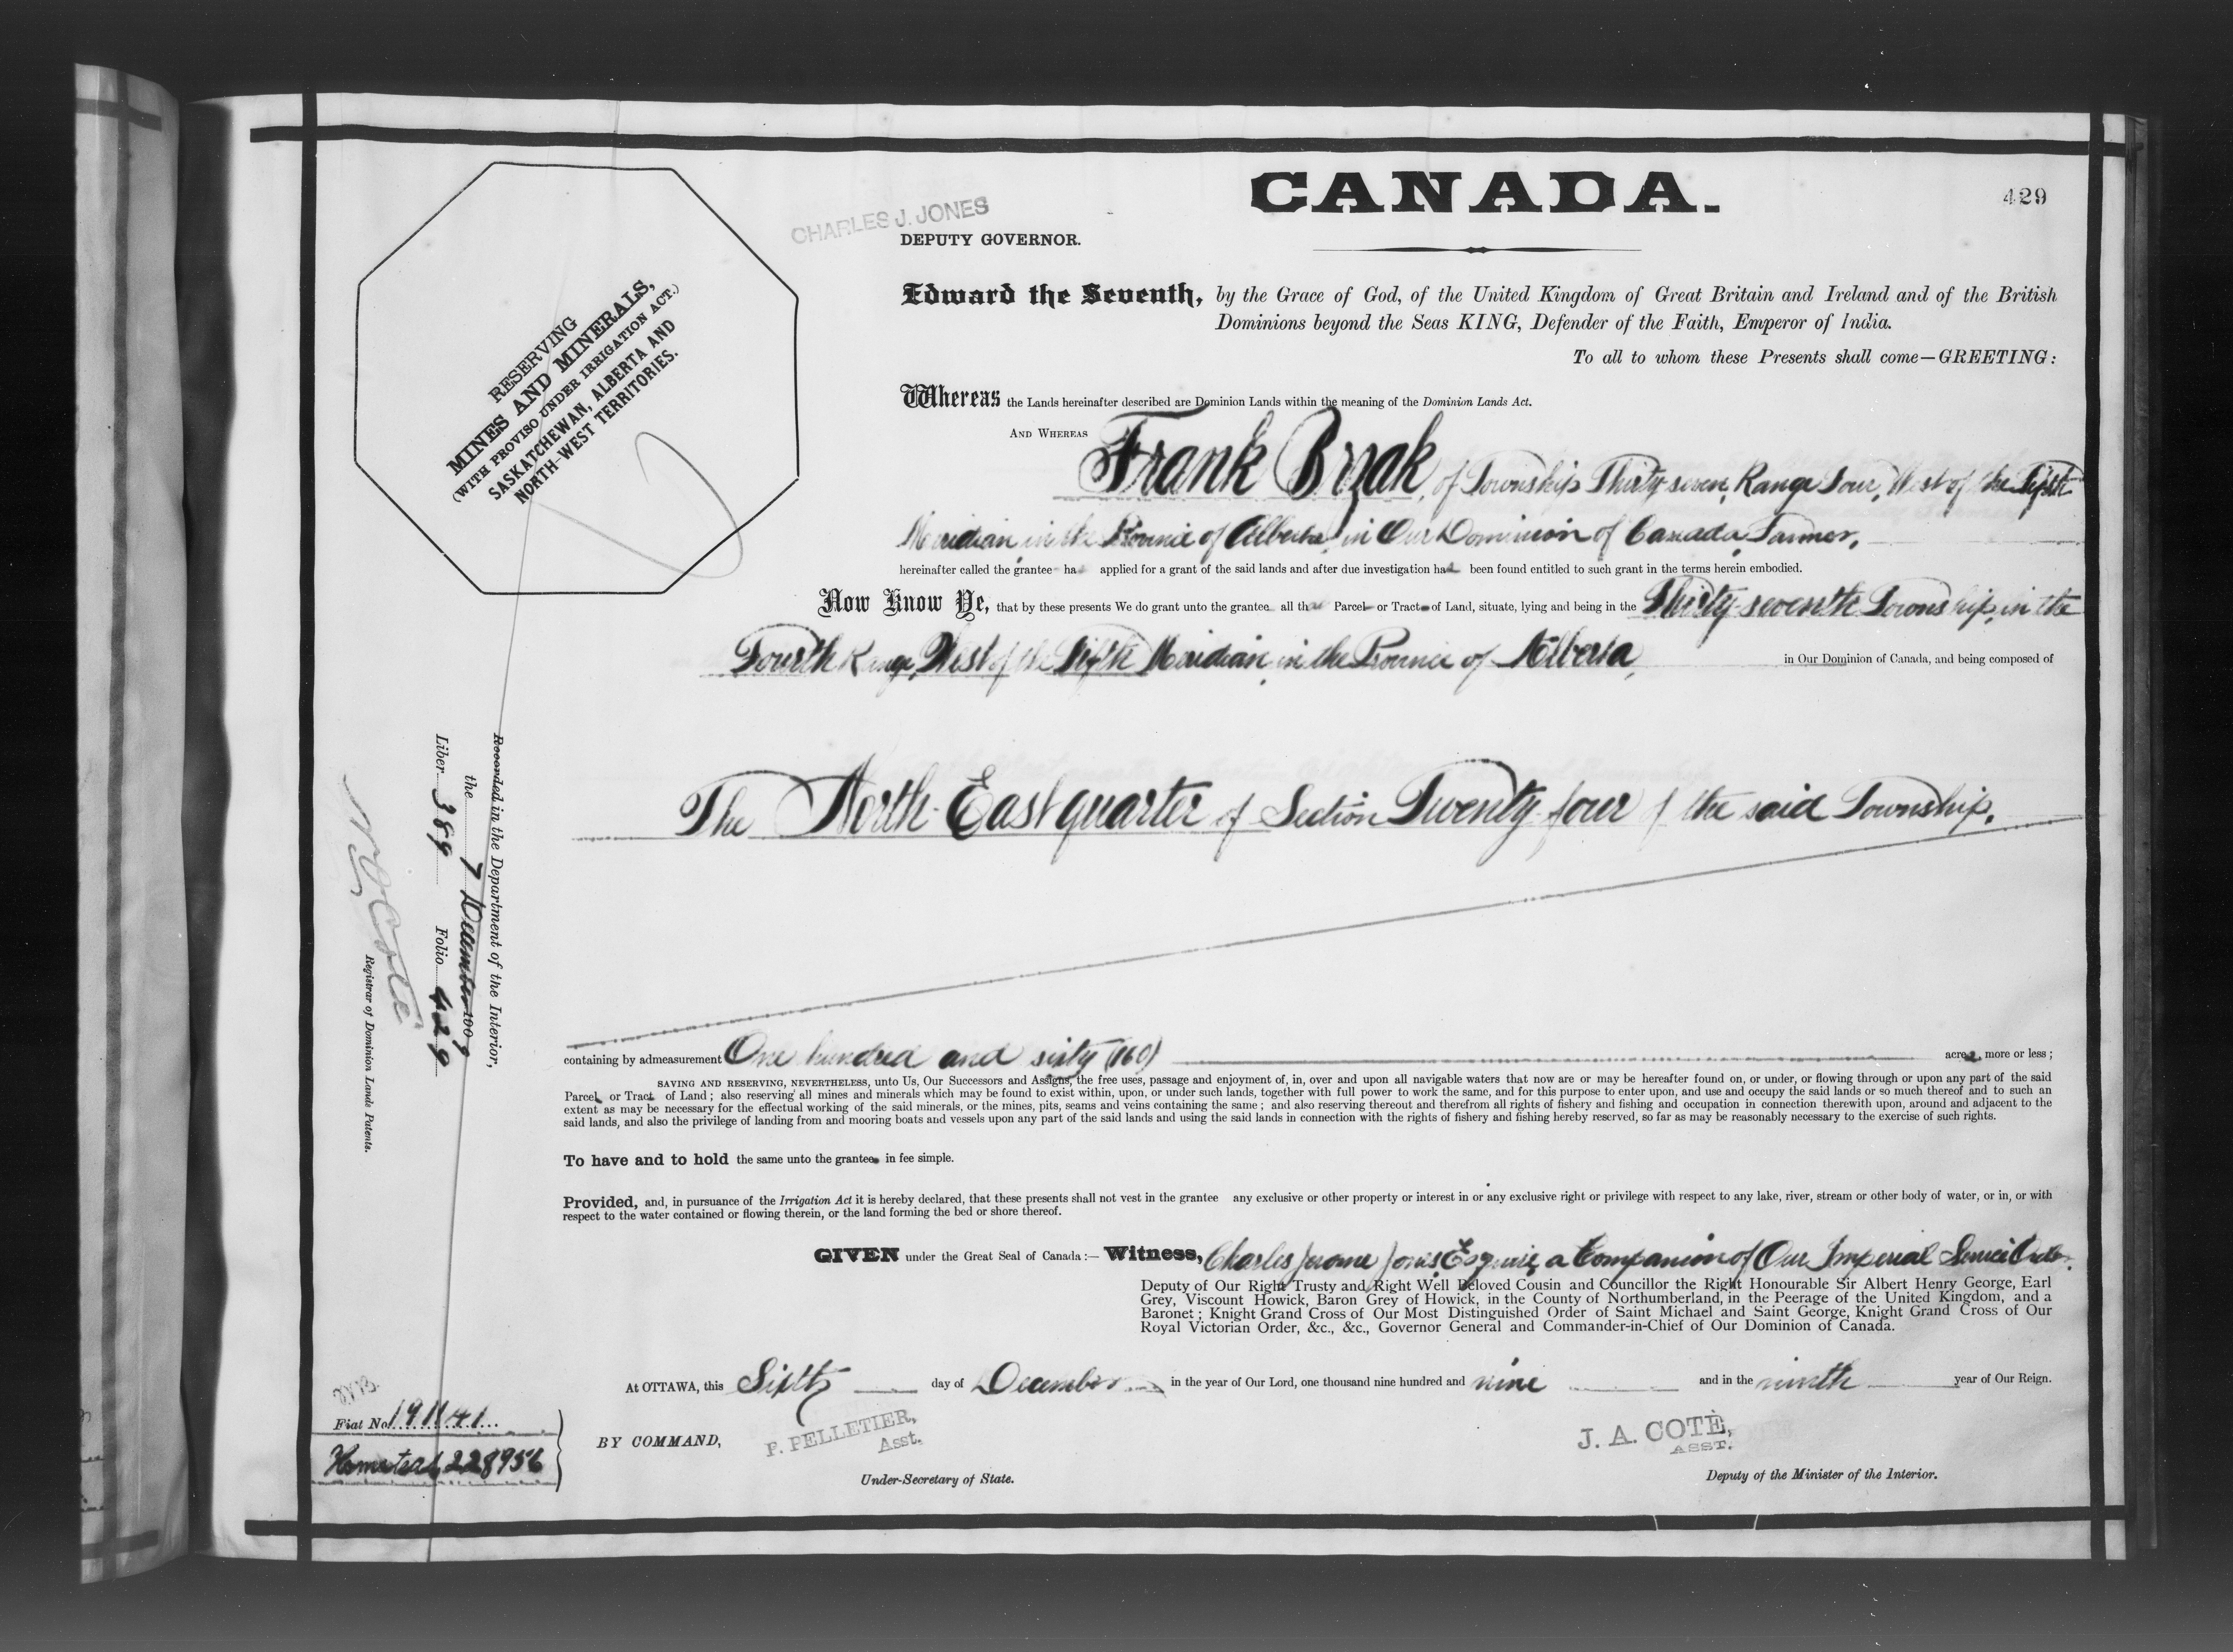 CANADA.
429
CHARLES J. JONES
DEPUTY GOVERNOR.
RESERVING
MINES AND MINERALS,
(WITH PROVISO UNDER IRRIGATION ACT.)
SASKATCHEWAN, ALBERTA AND
NORTH-WEST TERRITORIES.
Edward the Seventh, by the Grace of God, of the United Kingdom of Great Britain and Ireland and of the British
Dominions beyond the Seas KING, Defender of the Faith, Emperor of India.
To all to whom these Presents shall come—GREETING:
Whereas the Lands hereinafter described are Dominion Lands within the meaning of the Dominion Lands Act.
AND WHEREAS Frank Brzak, of Township Thirty seven, Range Four, West of the Fifth
Meridian, in the Province of Alberta, in Our Dominion of Canada, Farmer,
hereinafter called the grantee has applied for a grant of the said lands and after due investigation has been found entitled to such grant in the terms herein embodied.
Now Know Ye, that by these presents We do grant unto the grantee all that Parcel or Tract of Land, situate, lying and being in the Thirty-seventh Township, in the
Fourth Range, West of the Fifth Meridian, in the Province of Alberta, in Our Dominion of Canada, and being composed of
The North-East quarter of Section Twenty-four of the said Township.
containing by admeasurement One hundred and sixty (160) acres, more or less;
SAVING AND RESERVING, NEVERTHELESS, unto Us, Our Successors and Assigns, the free uses, passage and enjoyment of, in, over and upon all navigable waters that now are or may be hereafter found on, or under, or flowing through or upon any part of the said
Parcel or Tract of Land; also reserving all mines and minerals which may be found to exist within, upon, or under such lands, together with full power to work the same, and for this purpose to enter upon, and use and occupy the said lands or so much thereof and to such an
extent as may be necessary for the effectual working of the said minerals, or the mines, pits, seams and veins containing the same; and also reserving thereout and therefrom all rights of fishery and fishing and occupation in connection therewith upon, around and adjacent to the
said lands, and also the privilege of landing from and mooring boats and vessels upon any part of the said lands and using the said lands in connection with the rights of fishery and fishing hereby reserved, so far as may be reasonably necessary to the exercise of such rights.
To have and to hold the same unto the grantee in fee simple.
Provided, and, in pursuance of the Irrigation Act it is hereby declared, that these presents shall not vest in the grantee any exclusive or other property or interest in or any exclusive right or privilege with respect to any lake, river, stream or other body of water, or in, or with
respect to the water contained or flowing therein, or the land forming the bed or shore thereof.
GIVEN under the Great Seal of Canada:— Witness, Charles Jerome Jones Esquire, a Companion of Our Imperial Service Order.
Deputy of Our Right Trusty and Right Well Beloved Cousin and Councillor the Right Honourable Sir Albert Henry George, Earl
Grey, Viscount Howick, Baron Grey of Howick, in the County of Northumberland, in the Peerage of the United Kingdom, and a
Baronet; Knight Grand Cross of Our Most Distinguished Order of Saint Michael and Saint George, Knight Grand Cross of Our
Royal Victorian Order, &c., &c., Governor General and Commander-in-Chief of Our Dominion of Canada.
At OTTAWA, this Sixth day of December in the year of Our Lord, one thousand nine hundred and nine and in the ninth year of Our Reign.
BY COMMAND,
P. PELLETIER,
Asst.
Under-Secretary of State.
J. A. COTÉ,
ASST.
Deputy of the Minister of the Interior.
Recorded in the Department of the Interior,
the 7 December 1909
Liber 389 Folio 429
N O Coté
Registrar of Dominion Lands Patents.
Fiat No 191141
Homestead 228956